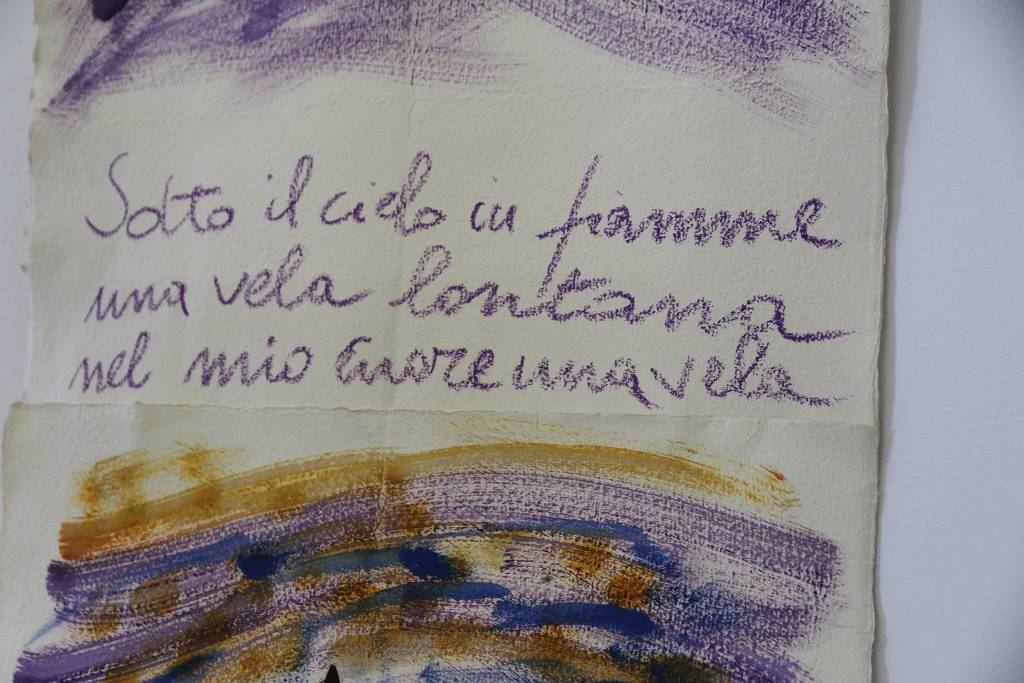 Sotto il cielo in fiamme
una vela lontana
nel mio cuore una vela